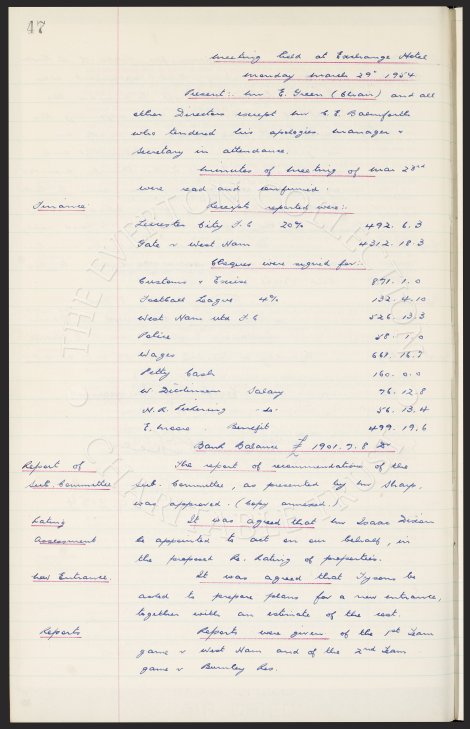 47
Meeting held at Exchange Hotel
Monday March 29th 1954
Present:: Mr E. Green (Chair) and all
other Directors except Mr C. E. Balmforth
who tendered his apologies. Manager &
Secretary in attendance.
Minutes of Meeting of Mar 23rd
were read and confirmed.
Finance. Receipts reported were::
Leicester City F.C 20% 492. 6. 3
Gate v West Ham 4312. 18. 3
Cheques were signed for::
Customs & Excise 871. 1. 0
Football League 4% 132. 4. 10
West Ham Utd F.C 526. 13. 3
Police 58. 1. 0
Wages 668. 16. 7
Petty Cash 160. 0. 0
W. Dickinson Salary 76. 12. 8
H. R. Pickering - do - 56. 13. 4
E. Moore. Benefit 499. 19. 6
Bank Balance £ 1901. 7. 8 Dr
Report of The report of recommendations of the
Sub. Committee Sub. Committee, as presented by Mr Sharp,
was approved. (Copy annexed.)
Rating It was agreed that Mr Isaac Dixon
Assessment be appointed to act on our behalf, in
the proposed Re. Rating of properties.
New Entrance. It was agreed that Tysons be
asked to prepare plans for a new entrance,
together with an estimate of the cost.
Reports Reports were given of the 1st Team
game v West Ham and of the 2nd Team
game v Burnley Res.
THE EVERTON COLLECTION
CHARITABLE TRUST